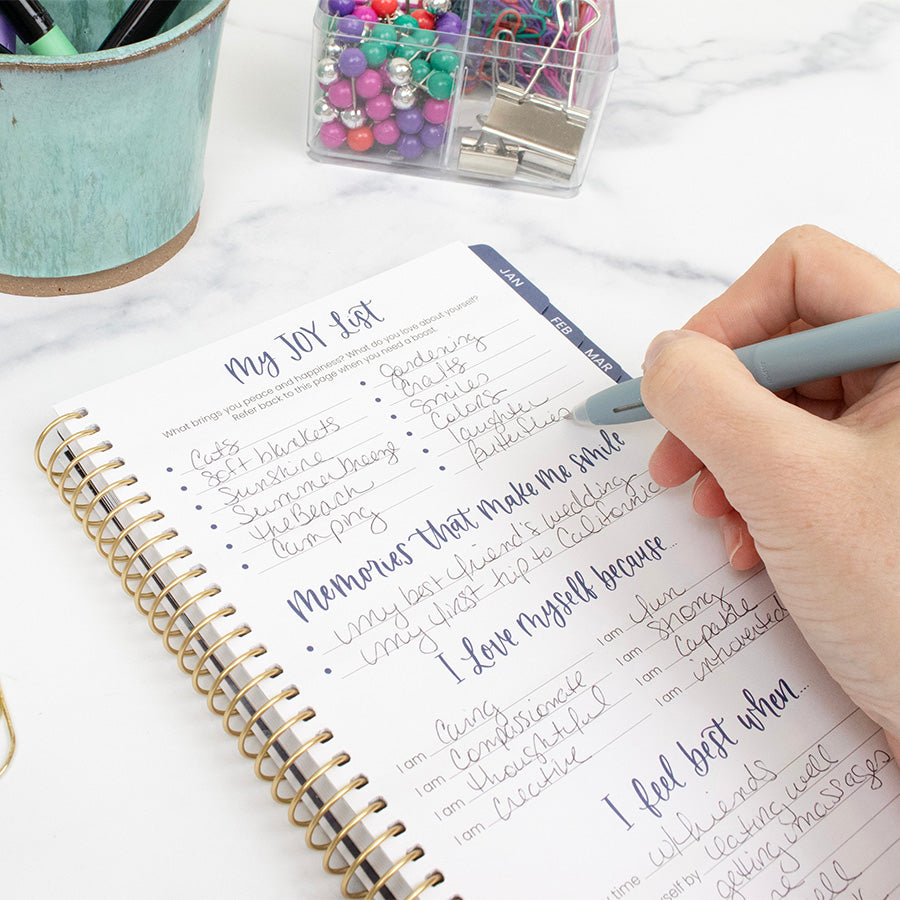 JAN
FEB
MAR
My JOY List
What brings you peace and happiness? What do you love about yourself?
Refer back to this page when you need a boost.
Cats
Soft blankets
Sunshine
Summertime
the Beach
Camping
gardening
Crafts
Smiles
Colors
laughter
butterflies
Memories that make me smile
my best friend's wedding
my first trip to California
I Love myself because...
I am Caring
I am Compassionate
I am thoughtful
I am Creative
I am fun
I am strong
I am capable
I am introverted
I feel best when...
time w/friends
self by eating well
getting massages